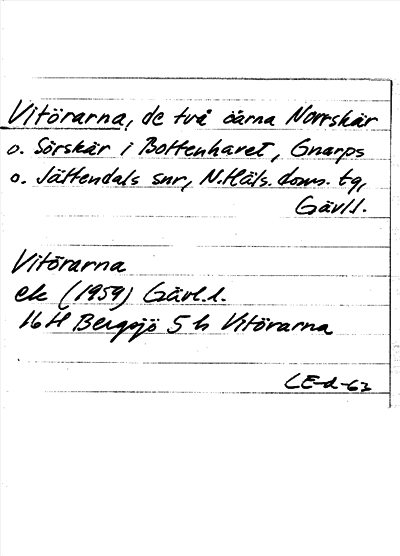 Vitörarna, de två öarna Norrskär
o. Sörskär i Bottenhavet, Gnarps
o. Jättendals snr, N. Häls. doms. tg,
Gävl.l.
Vitörarna
ek (1959) Gävl.l.
16H Bergsjö 5 h Vitörarna
CE-d-63